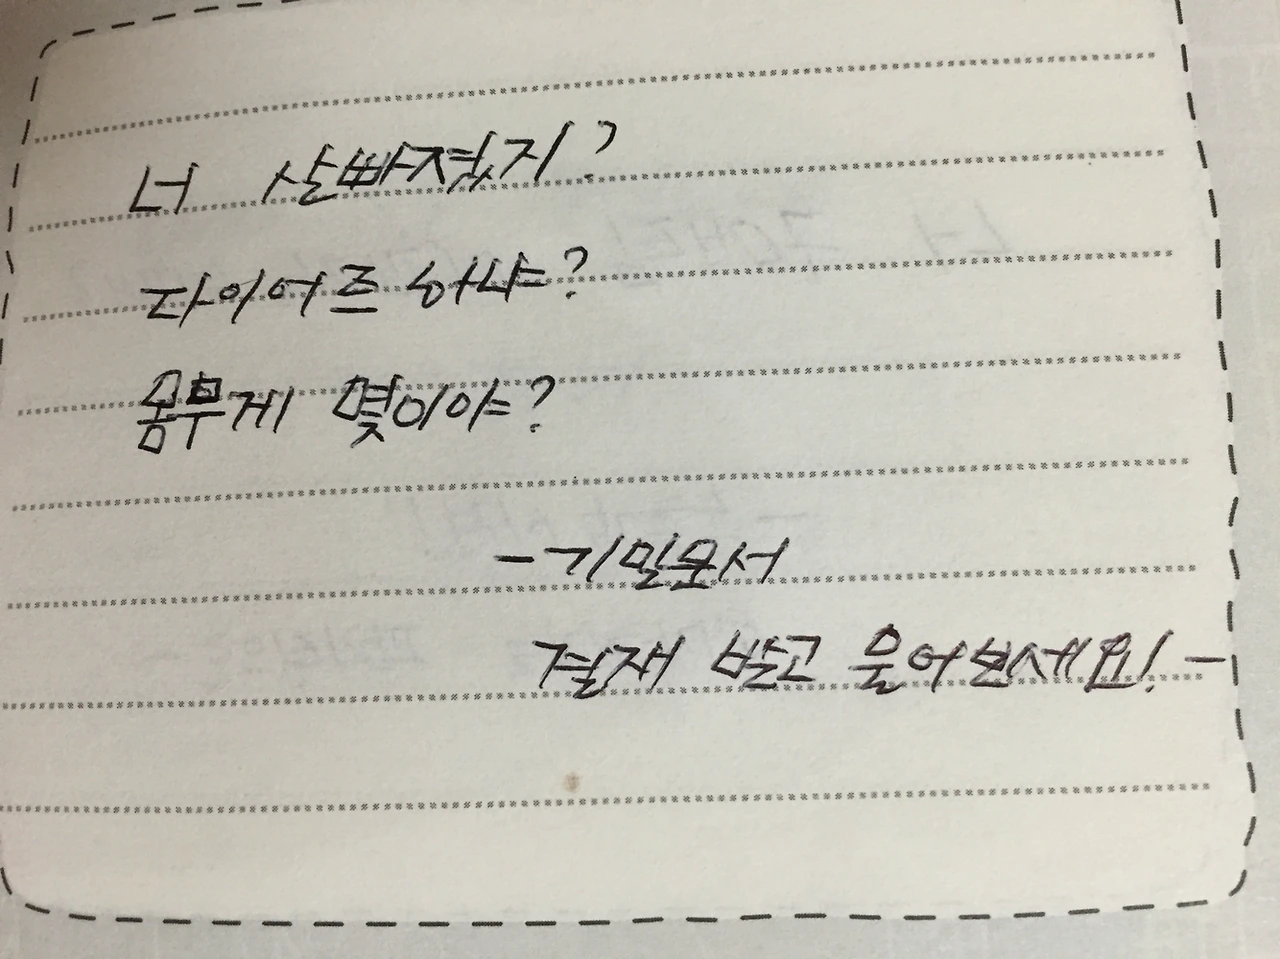 너 살빠졌지?
다이어즈 하냐?
몸무게 몇이야?
-기밀문서
결재 받고 물어보세요! -